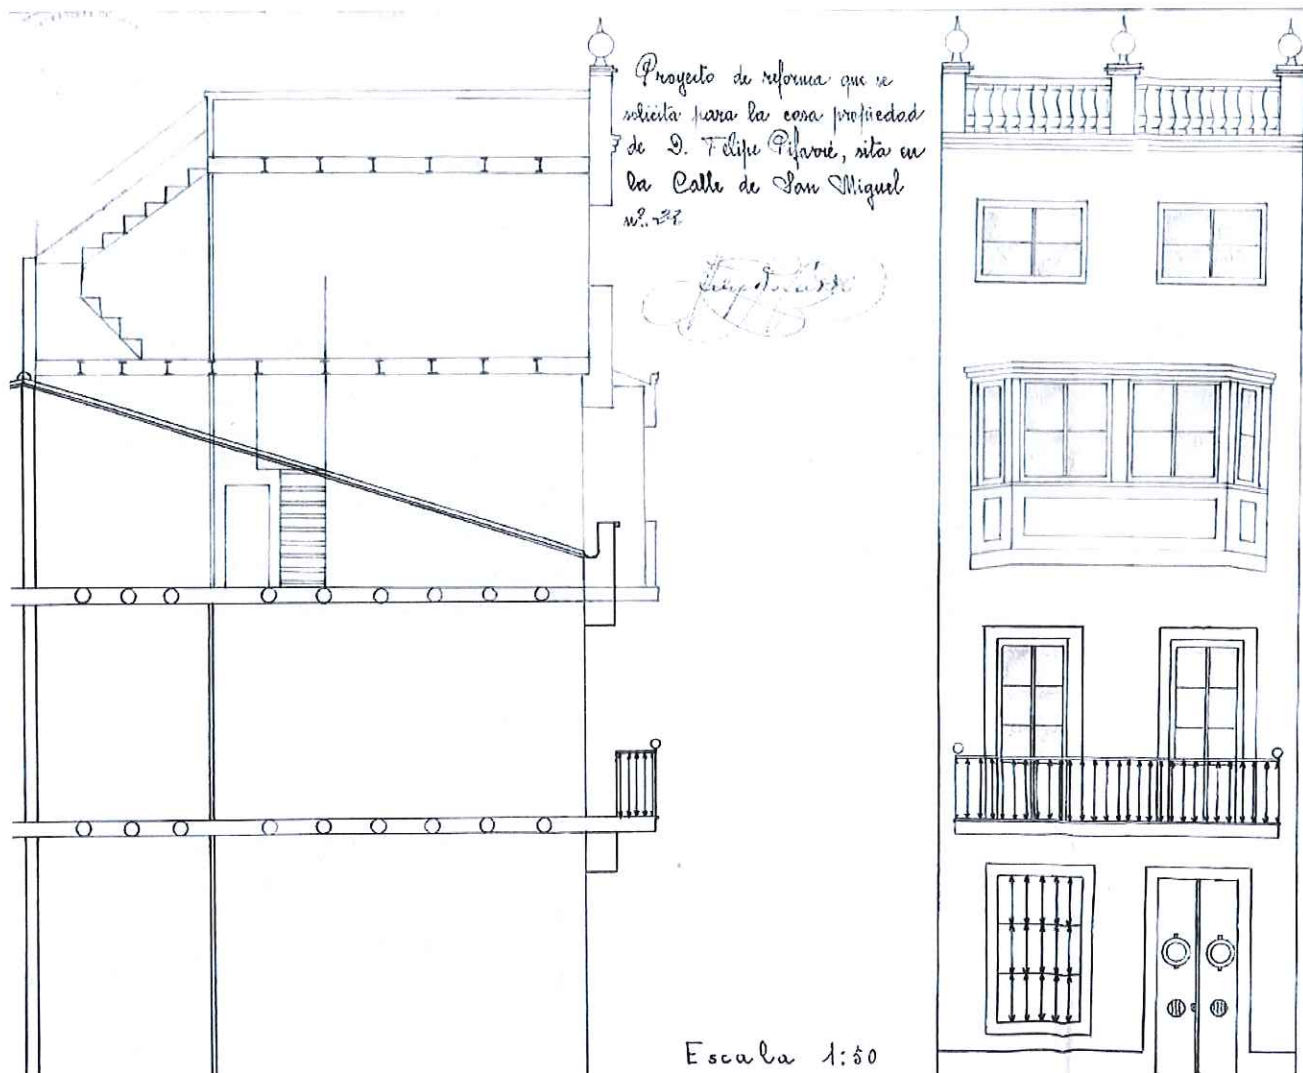 Proyecto de reforma que se
solicita para la casa propiedad
de D. Felipe Pifarré, sita en
la Calle de San Miguel
nº.
Escala 1:50